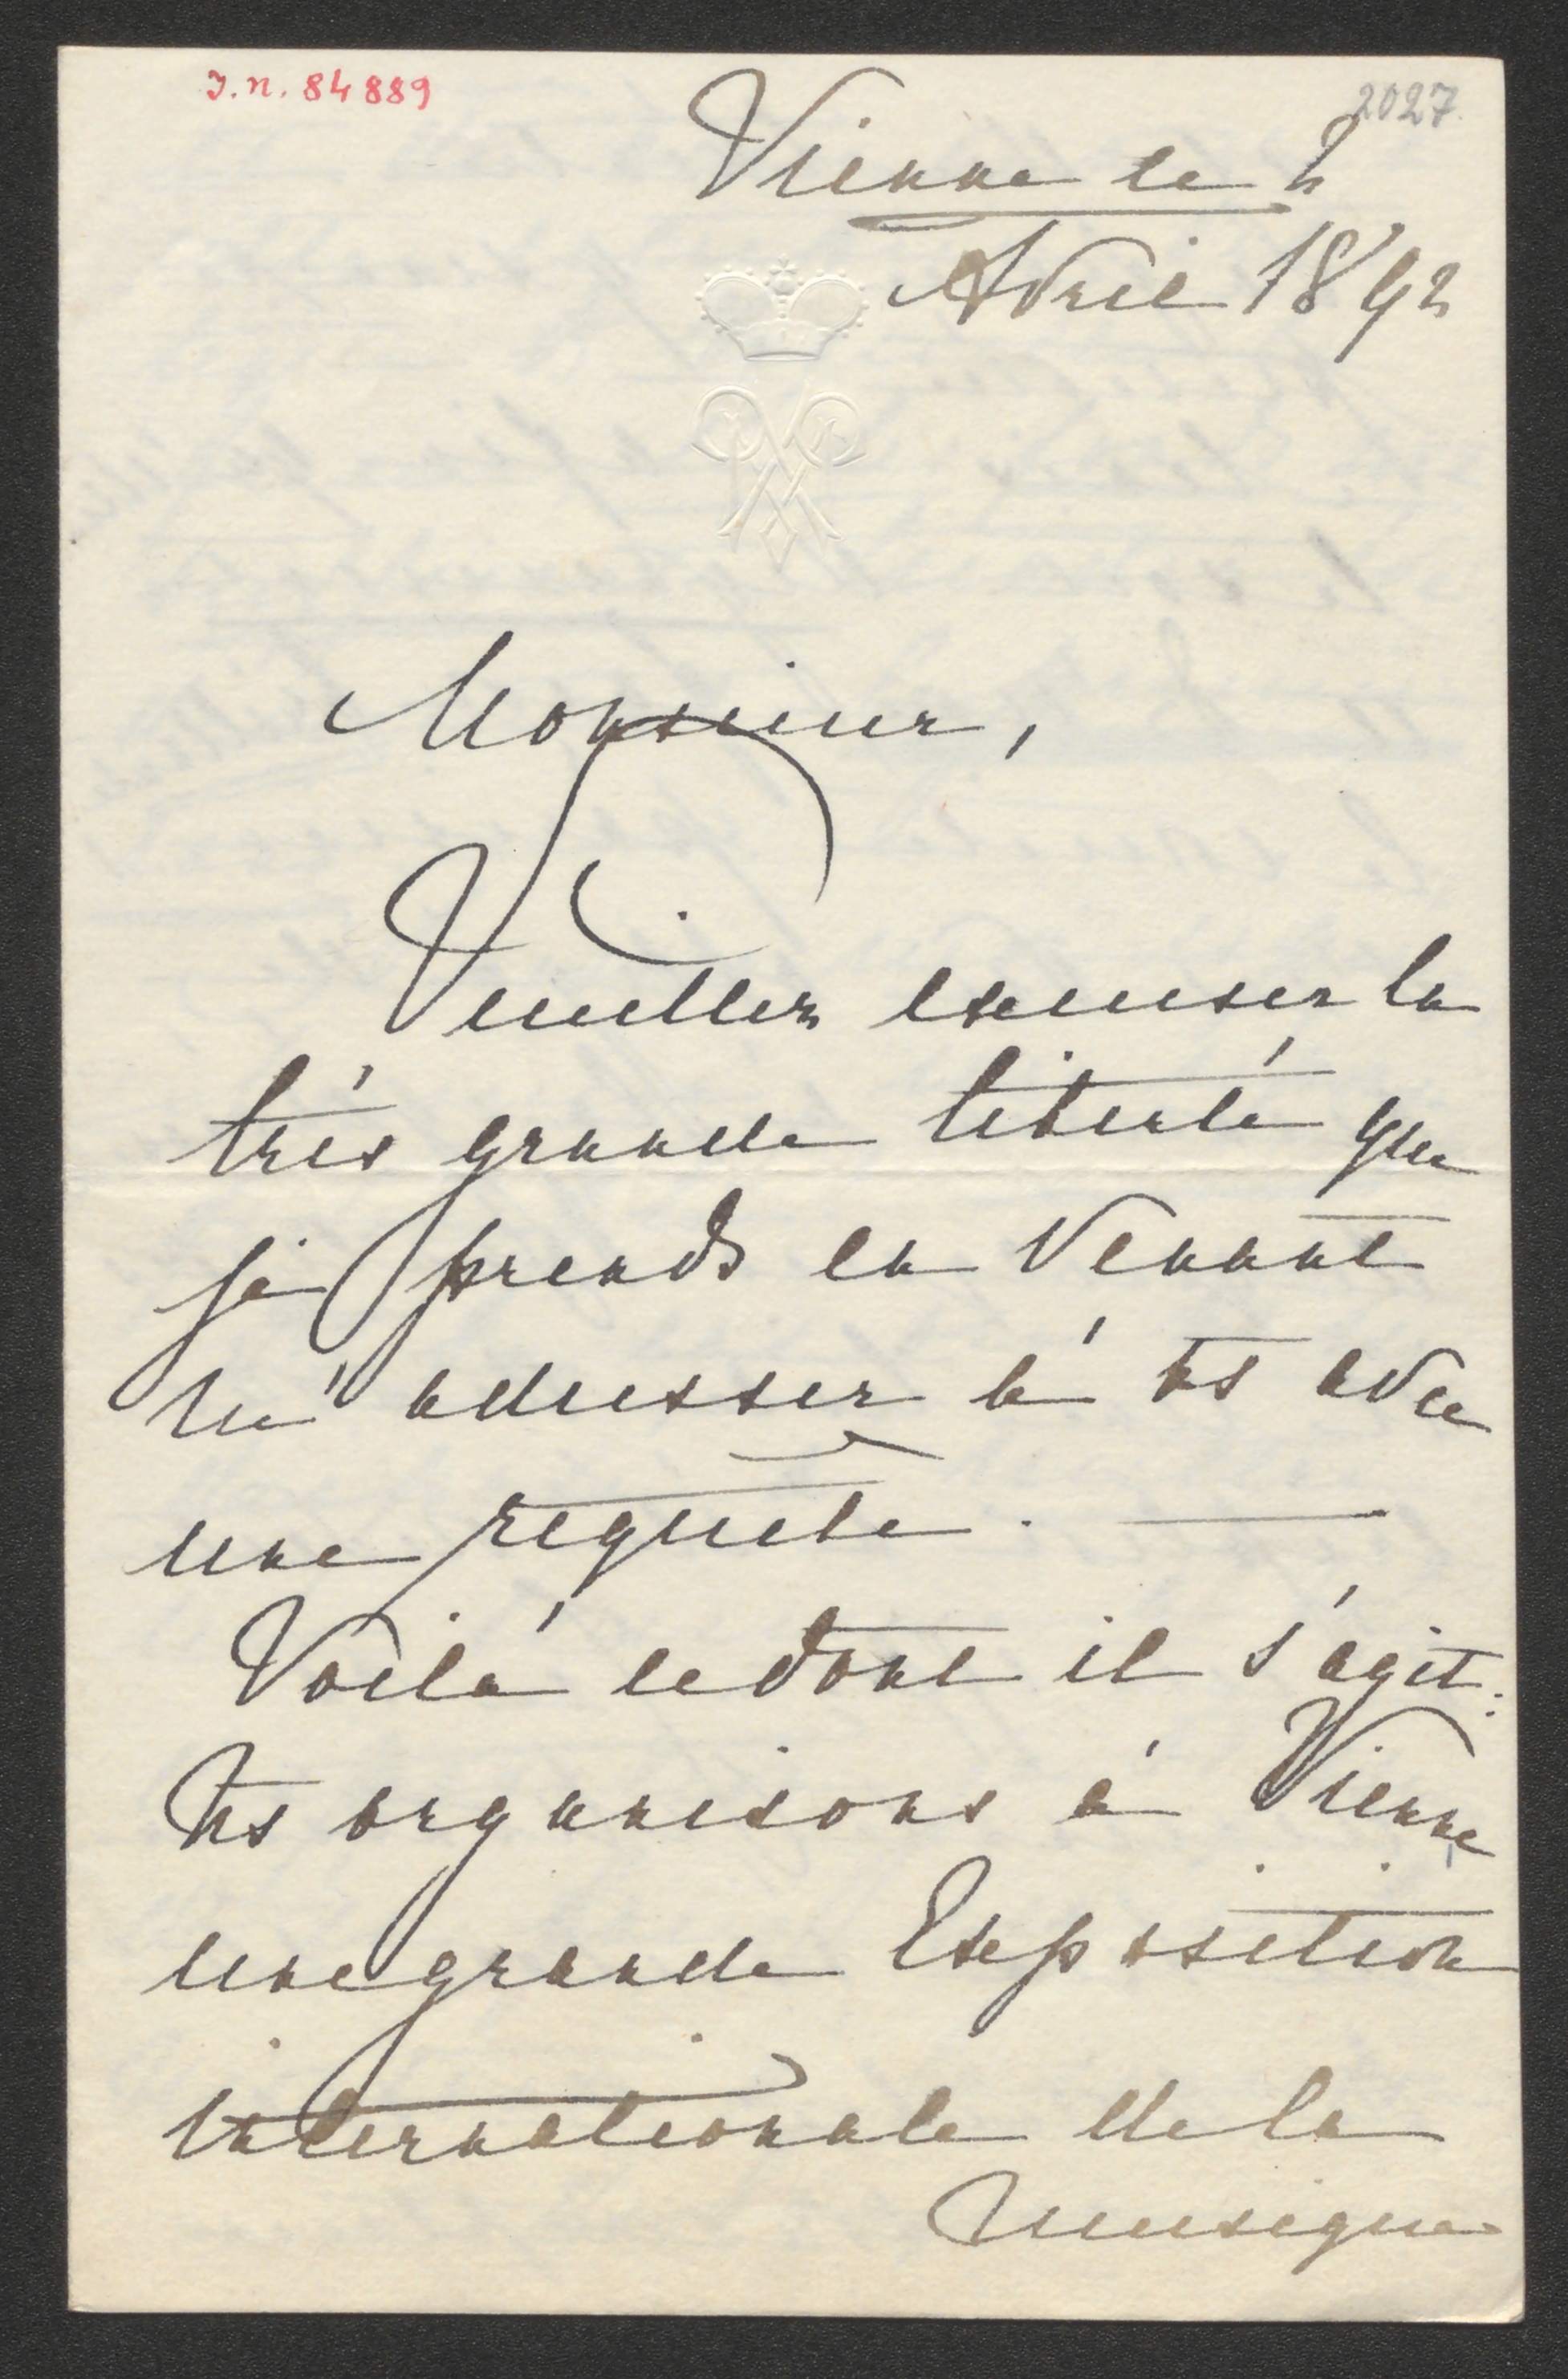 J.n. 84889
2027.
Vienne le 2
Avril 1892
Monsieur,
Veuillez excuser la
très grande liberté que
je prends en venant
m'adresser à vs avec
une requête. —
Voilà ce dont il s'agit:
Ns organisons à Vienne
une grande Exposition
internationale de la
Musique